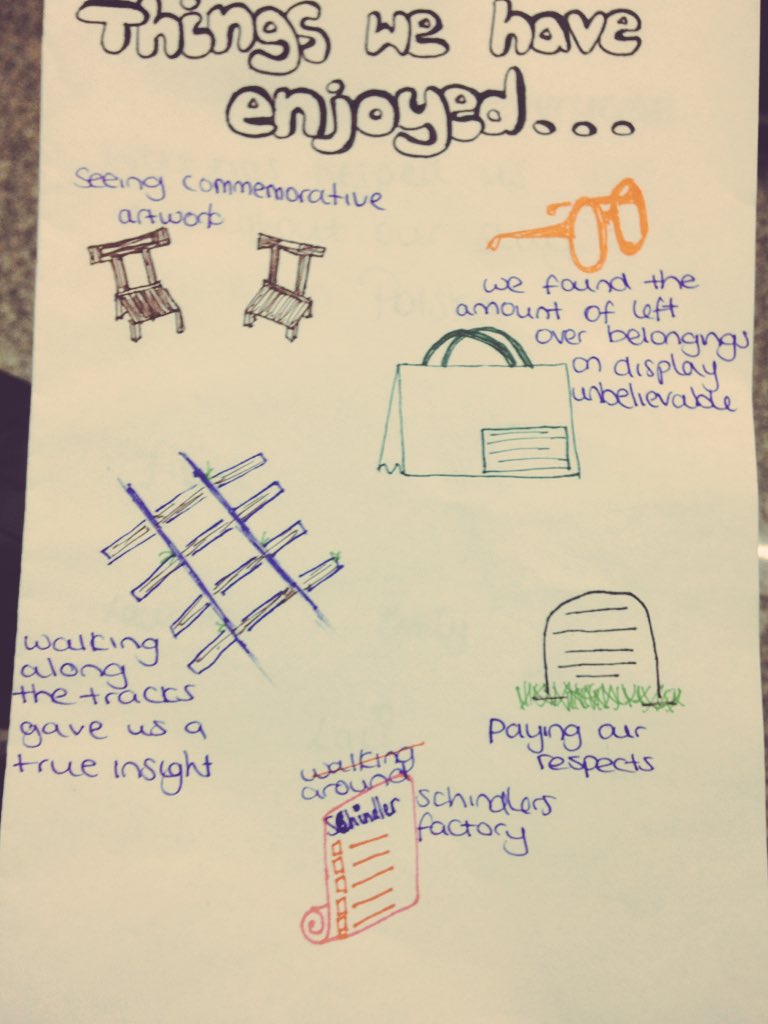 Things we have
enjoyed...
seeing commemorative
artwork
we found the
amount of left
over belongings
on display
unbelievable
walking
along
the tracks
gave us a
true insight
Paying our
respects
walking
around
schindlers
factory
Schindler